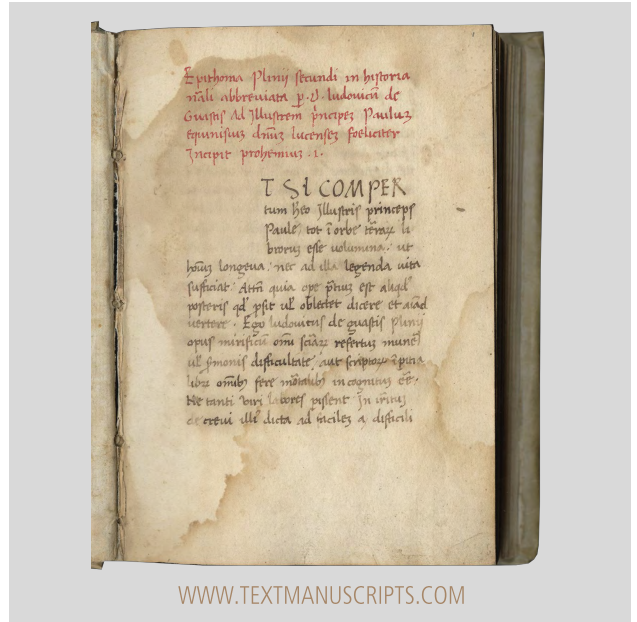 Epithoma Plinij secundi in historia
nãli abbreviata p. d. ludovicũ de
Guastis Ad Illustrem prĩcipez Pauluz
equinisius dñuz lucensez foeliciter
Incipit prohemius .1.
T SI COMPER
tum heo Illustris princeps
Paule, tot ĩ orbe terraꝝ li
broruz esse volumina. ut
hoĩuz longeva. nec ad illa legenda vita
sufficiat. Attñ quia ope p̃tiuz est aliqd̓
posteris qd̓ psit ul̓ oblectet dicere et
vertere. Ego ludovicus de guastis Plinij
opus mirificũ omi sciãꝝ refertus
ul̓ s̃monis difficultate, aut scriptoꝝ ĩpitia
libꝝ omĩbꝫ fere mõtalibꝫ incognitus ẽe.
Ne tanti viri labores In
decrevi illi dicta ad facilez a difficili
WWW.TEXTMANUSCRIPTS.COM